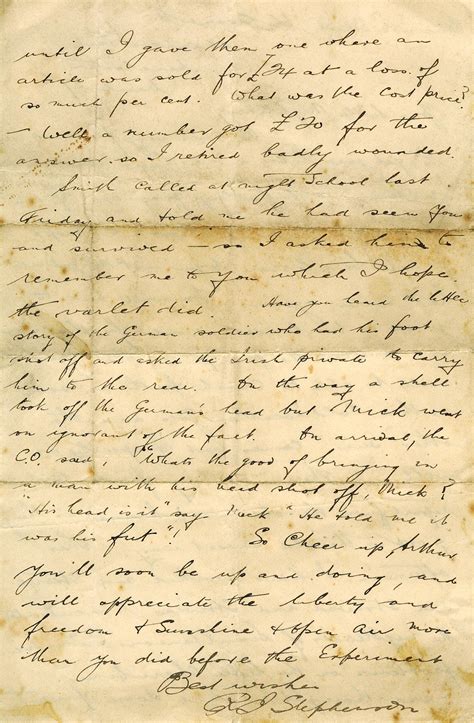 until I gave them one where an
article was sold for £74 at a loss of
so much per cent. What was the cost price?
– Well a number got £70 for the
answer, so I retired badly wounded.
Smith called at night School last
Friday and told me he had seen you
and survived – so I asked him to
remember me to you which I hope
the varlet did. Have you heard the little
story of the German soldier who had his foot
shot off and asked the Irish private to carry
him to the rear. On the way a shell
took off the German's head but Mick went
on ignorant of the fact. On arrival, the
C.O. said, "Whats the good of bringing in
a man with his head shot off, Mick?
"His head, is it" say Mick "He told me it
was his fut"! So Cheer up, Arthur
You'll soon be up and doing, and
will appreciate the liberty and
freedom & Sunshine & open air more
than you did before the Experiment
Best wishes
Stephenson